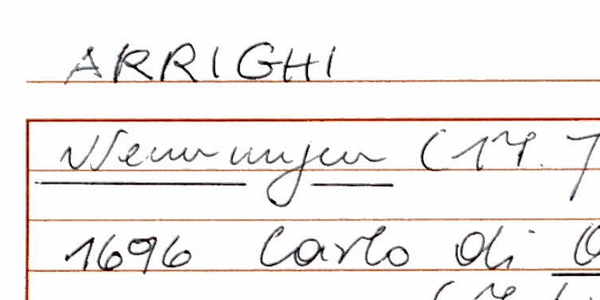 ARRIGHI
Nennungen (17.
1696 Carlo di